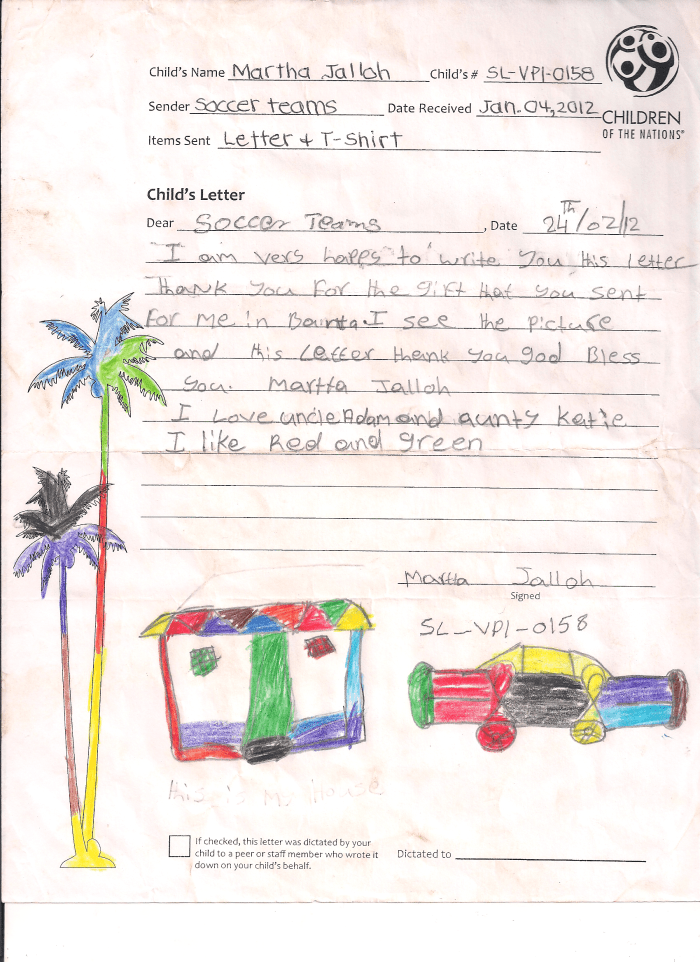 Child's Name Martha Jalloh Child's # SL-VP1-0158
Sender Soccer teams Date Received Jan. 04, 2012
CHILDREN
OF THE NATIONS®
Items Sent Letter + T-Shirt
Child's Letter
Dear Soccer Teams, Date 24Th/02/12
I am vers happs to write you this letter
thank you For the gift that you sent
For me in Bounta. I see the picture
and this Letter thank you god Bless
you. Martta Jalloh
I Love uncle Adam and aunty Katie
I like Red and green
Martta Jalloh
Signed
SL-VP1-0158
this is my House
If checked, this letter was dictated by your
child to a peer or staff member who wrote it
down on your child's behalf.
Dictated to